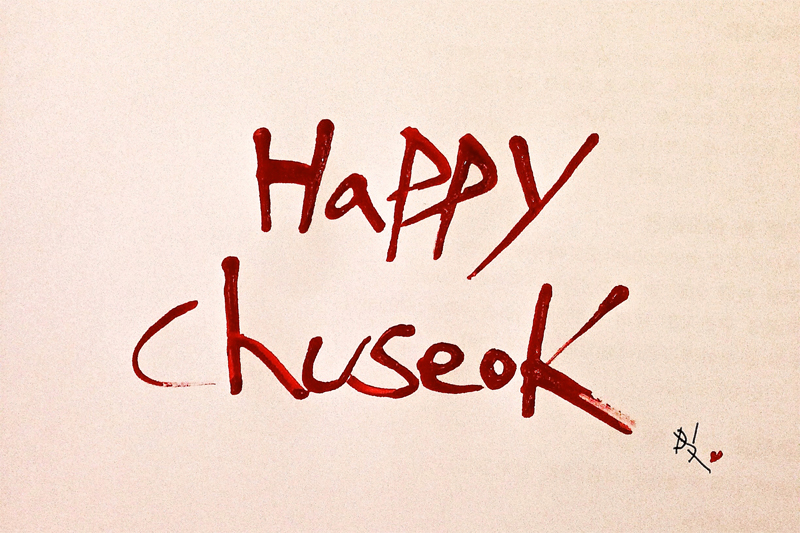 Happy
Chuseok